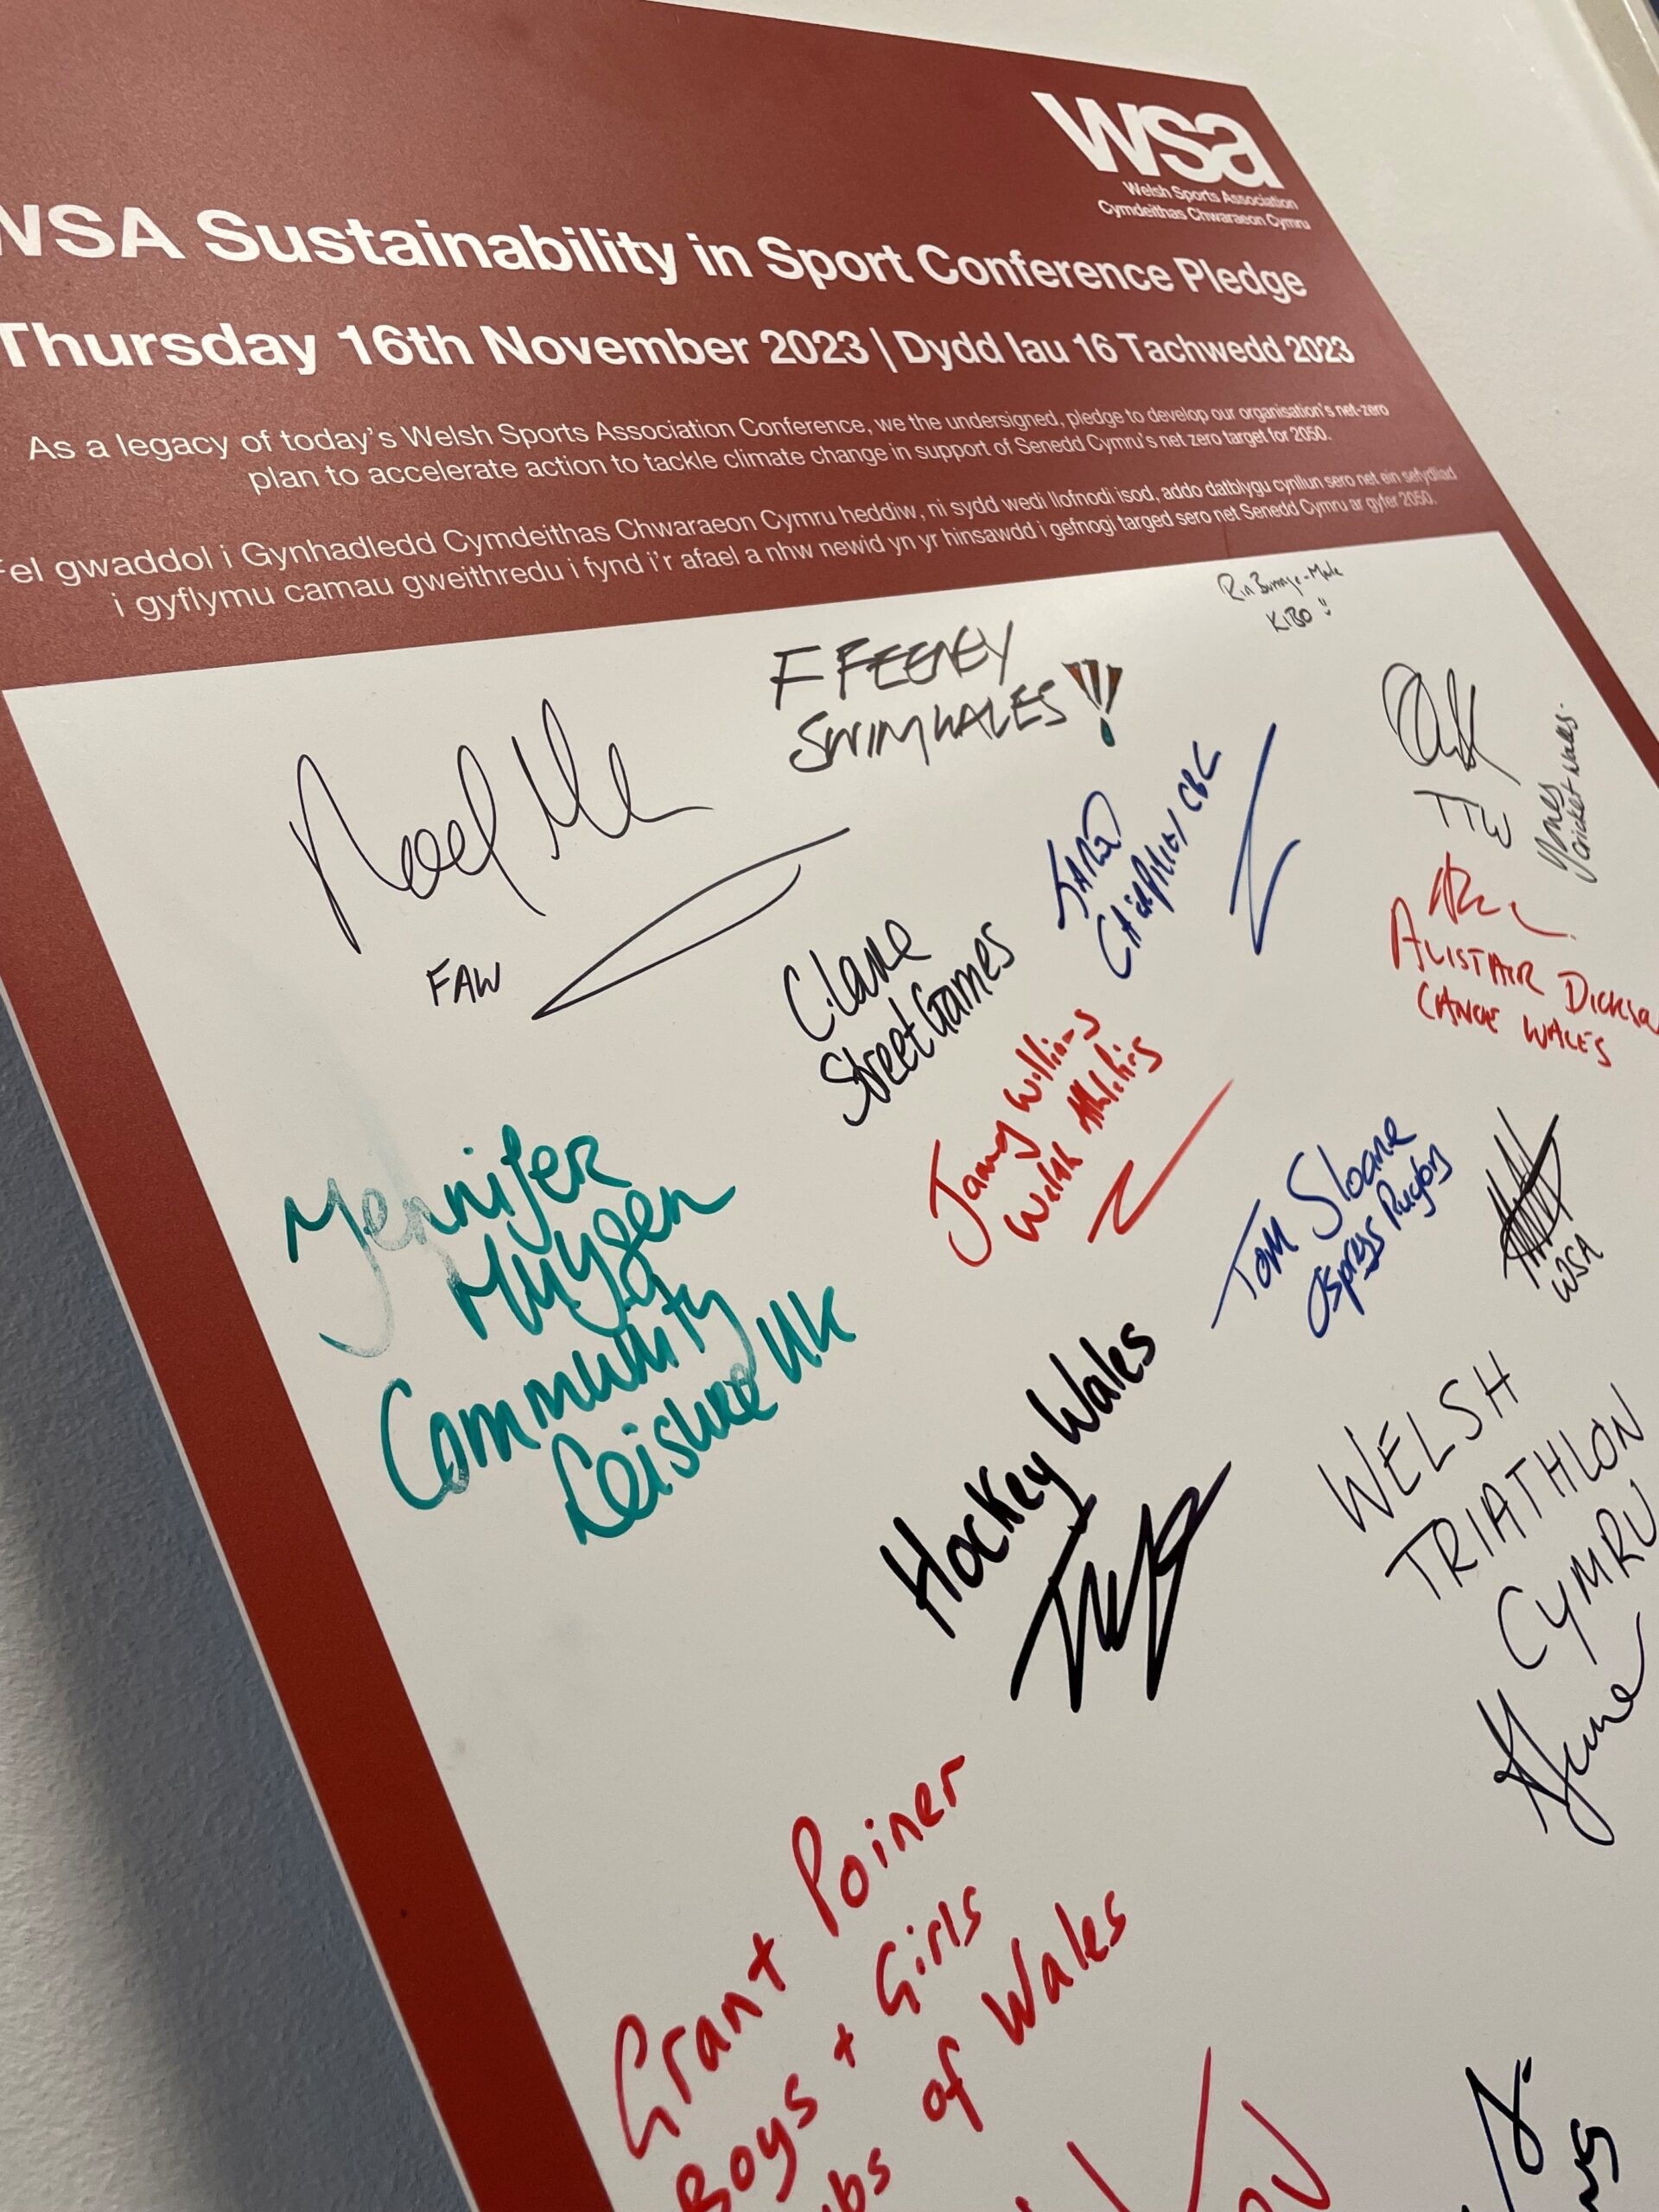 wsa
Welsh Sports Association
Cymdeithas Chwaraeon Cymru
WSA Sustainability in Sport Conference Pledge
Thursday 16th November 2023 | Dydd Iau 16 Tachwedd 2023
As a legacy of today's Welsh Sports Association Conference, we the undersigned, pledge to develop our organisation's net-zero
plan to accelerate action to tackle climate change in support of Senedd Cymru's net zero target for 2050.
Fel gwaddol i Gynhadledd Cymdeithas Chwaraeon Cymru heddiw, ni sydd wedi llofnodi isod, addo datblygu cynllun sero net ein sefydliad
i gyflymu camau gweithredu i fynd i'r afael a nhw newid yn yr hinsawdd i gefnogi targed sero net Senedd Cymru ar gyfer 2050.
KIBO
F FEENEY
SWIM WALES
Noel
FAW
TTW
Jones
Cricket Wales.
Claire
StreetGames
ALISTAIR DICKSO
CANOE WALES
Williams
Welsh Athletics
Tom Sloane
Ospreys Rugby
WSA
Jennifer
Huygen
Community
Leisure UK
Hockey Wales
WELSH
TRIATHLON
CYMRU
Grant Poiner
Boys + Girls
of Wales